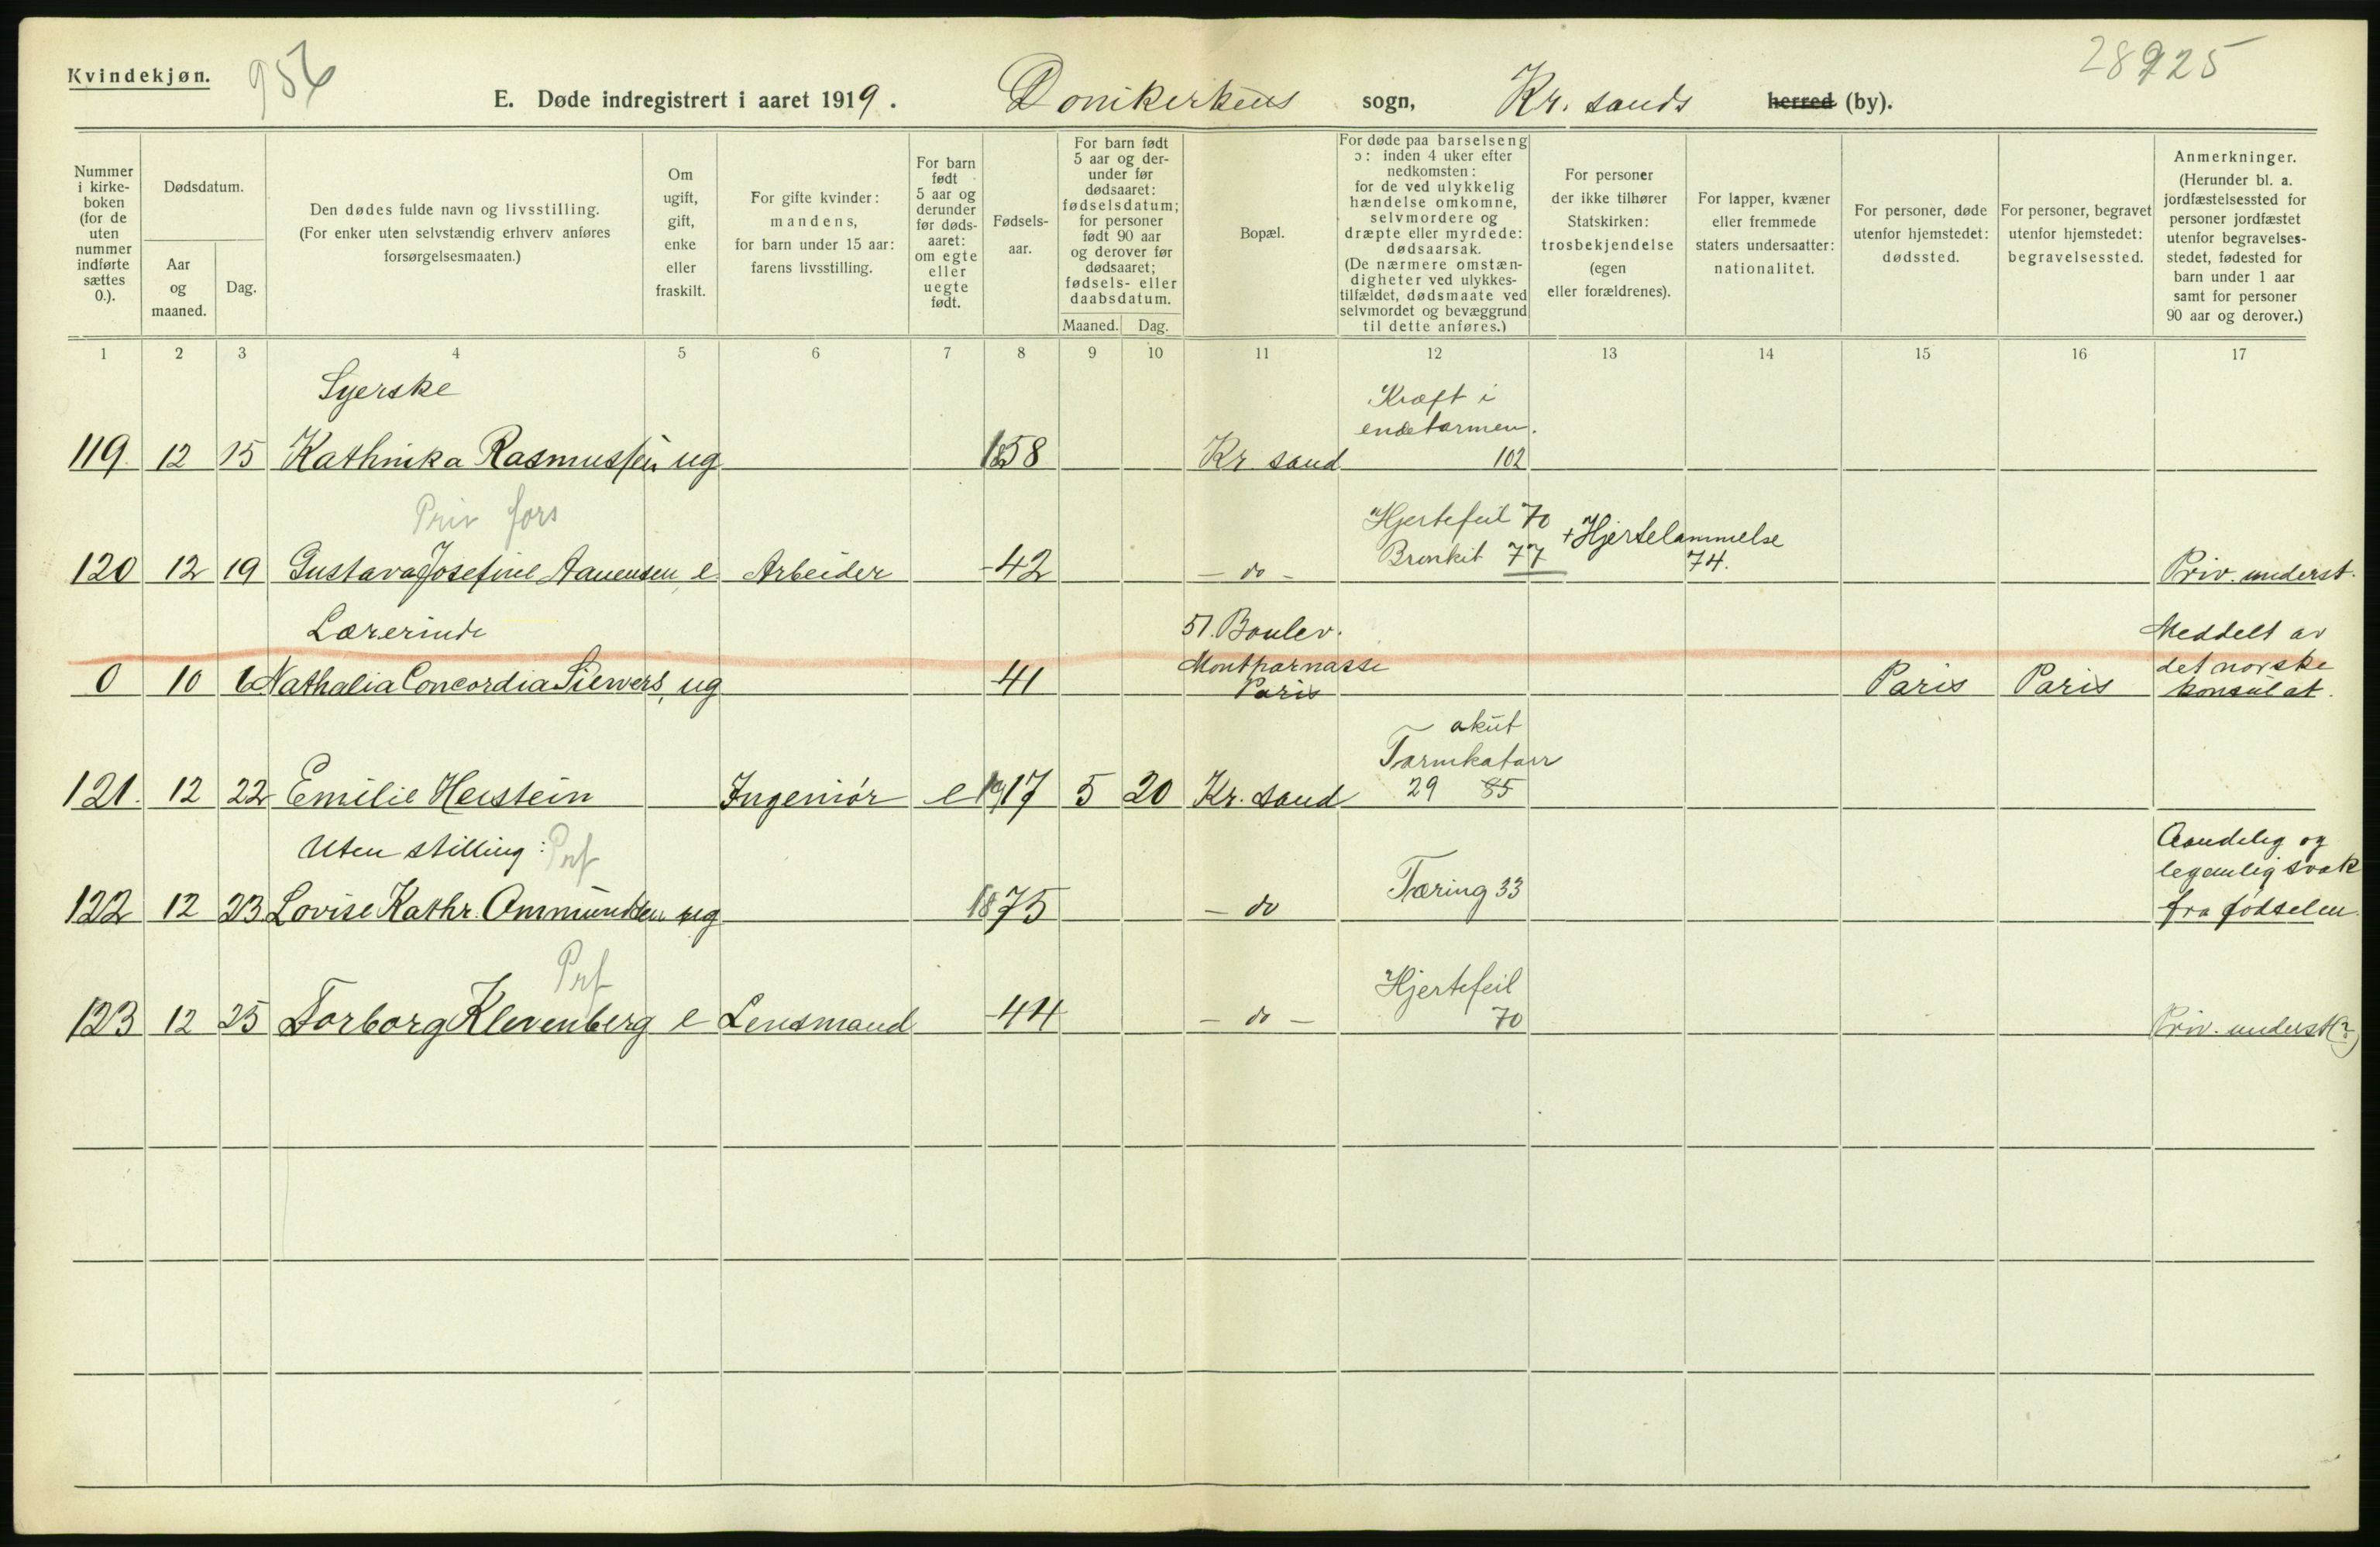 Kvindekjøn.
956
28925
E. Døde indregistrert i aaret 1919. Domkirkens sogn, Kr. sands herred (by).
Nummer i kirkeboken (for de uten nummer indførte sættes 0.).
Dødsdatum.
Aar og maaned.
Dag.
Den dødes fulde navn og livsstilling. (For enker uten selvstændig erhverv anføres forsørgelsesmaaten.)
Om ugift, gift, enke eller fraskilt.
For gifte kvinder: mandens, for barn under 15 aar: farens livsstilling.
For barn født 5 aar og derunder før dødsaaret: om egte eller uegte født.
Fødselsaar.
For barn født 5 aar og derunder før dødsaaret: fødselsdatum; for personer født 90 aar og derover før dødsaaret; fødsels- eller daabsdatum.
Maaned.
Dag.
Bopæl.
For døde paa barselseng ɔ: inden 4 uker efter nedkomsten: for de ved ulykkelig hændelse omkomne, selvmordere og dræpte eller myrdede: dødsaarsak. (De nærmere omstændigheter ved ulykkestilfældet, dødsmaate ved selvmordet og bevæggrund til dette anføres.)
For personer der ikke tilhører Statskirken: trosbekjendelse (egen eller forældrenes).
For lapper, kvæner eller fremmede staters undersaatter: nationalitet.
For personer, døde utenfor hjemstedet: dødssted.
For personer, begravet utenfor hjemstedet: begravelsessted.
Anmerkninger. (Herunder bl. a. jordfæstelsessted for personer jordfæstet utenfor begravelsesstedet, fødested for barn under 1 aar samt for personer 90 aar og derover.)
1 2 3 4 5 6 7 8 9 10 11 12 13 14 15 16 17
Syerske
Kræft i
endetarmen.
119. 12 15 Kathinka Rasmussen ug 1858 Kr. sand 102
Priv fors
Hjertefeil 70 + Hjertelammelse
Bronkit 77 74.
120 12 19 Gustava Josefine Aanensen, e Arbeider -42 - do - Priv. underst.
Lærerinde 51. Boulev. Meddelt av
Montparnasse det norske
0 10 6 Nathalia Concordia Siewers, ug 41 Paris Paris Paris konsulat.
akut
Tarmkatarr
121. 12 22 Emilie Heistein Ingeniør e 1917 5 20 Kr. sand 29 85
Uten stilling: Prf
Aandelig og
legemlig svak
122 12 23 Lovise Kathr. Ommundsen ug 1875 - do Tæring 33 fra fødselen.
Prf
Hjertefeil
123 12 25 Torborg Klevenberg e Lensmand -44 - do - 70 Priv. underst(?)